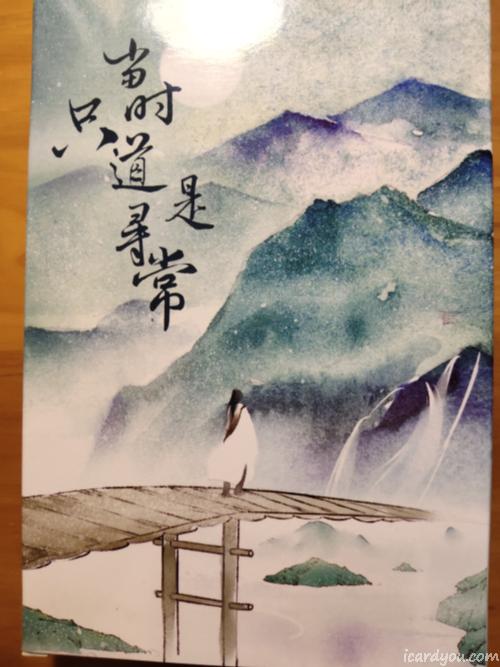 当时
只道是
寻常
icardyou.com